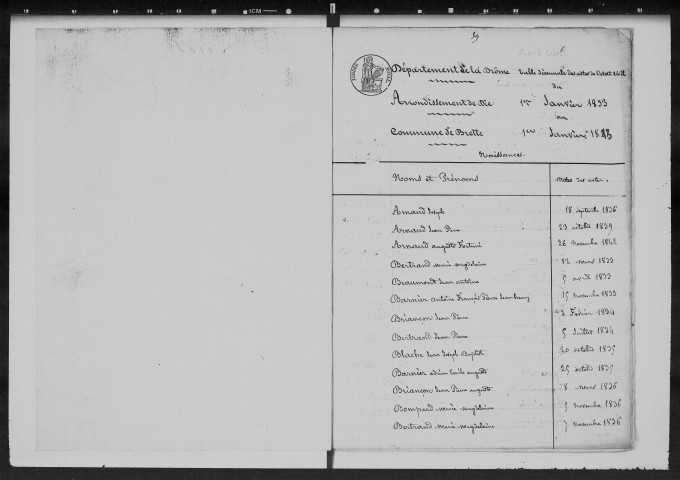 Département de la Drôme
Table décennale des actes de l'état civil
du
Arrondissement de Die
1er Janvier 1833
au
Commune de Brette
1er Janvier 1843
Naissances.
Noms et Prénoms
Dates des actes.
Arnaud Joseph 18 septembre 1836
Arnaud Jean Pierre 29 octobre 1839
Arnaud auguste Fortuné 26 novembre 1842
Bertrand marie magdelaine 12 mars 1833
Beaumont Jean antoine 5 avril 1833
Barnier antoine François Pierre 15 novembre 1833
Briançon Jean Pierre 2 Février 1834
Bertrand Jean Pierre 5 Juillet 1834
Blache Jean Joseph Baptiste 20 octobre 1835
Barnier adrien Emile auguste 25 octobre 1835
Briançon Jean Pierre auguste 8 mars 1836
Bompard marie magdelaine 5 novembre 1836
Bertrand marie magdelaine 7 novembre 1836